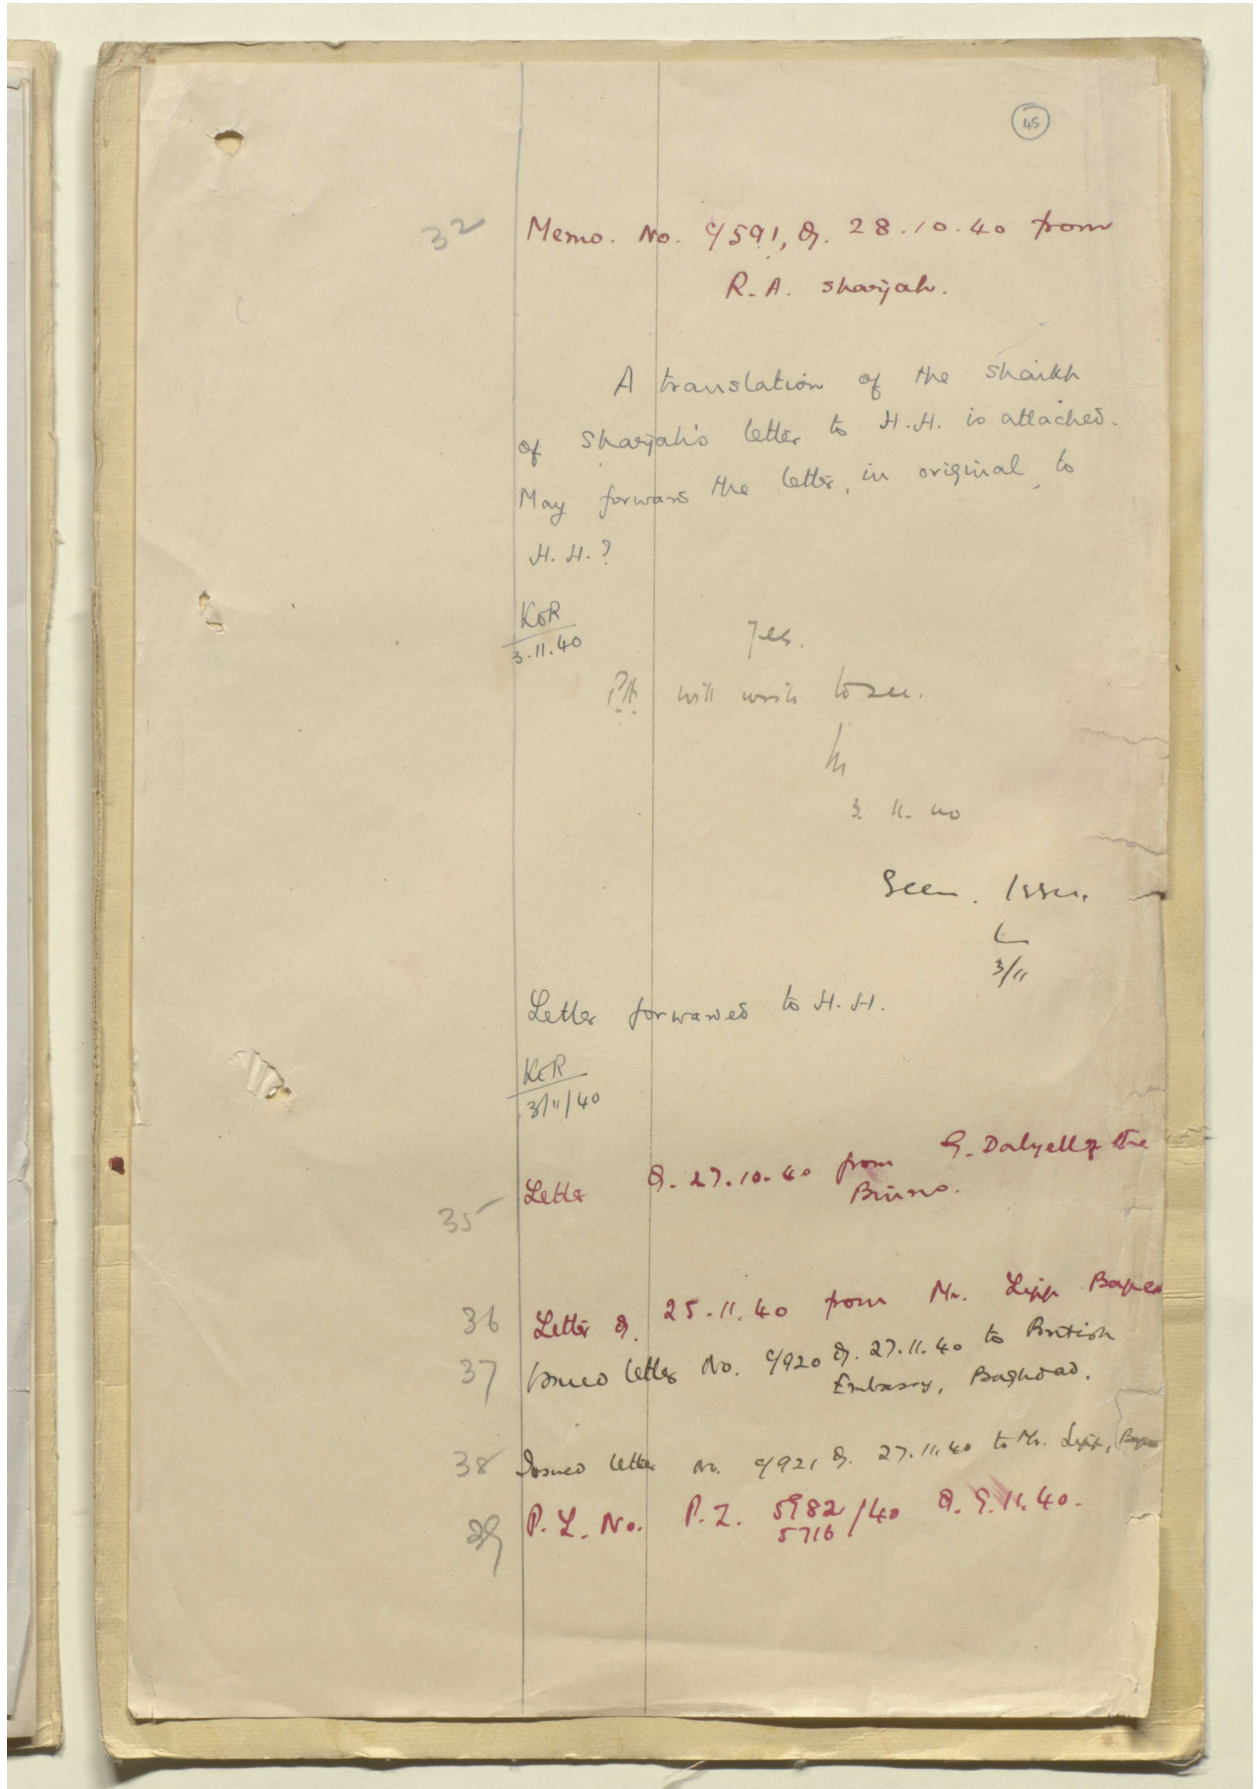 45
32 Memo. No. C/591, d. 28.10.40 from
R.A. Sharjah.
A translation of the Shaikh
of Sharjah's letter to H.H. is attached.
May forward the letter, in original, to
H.H.?
3.11.40
Yes.
P.A. will wish to see.
3. 11. 40
Seen. Issue.
3/11
Letter forwarded to H.H.
3/11/40
35 Letter d. 27.10.40 from G. Dalyell of the
Binns.
36 Letter d. 25.11.40 from Mr. Lipp
37 Issued letter No. C/920 d. 27.11.40 to British
Embassy, Baghdad.
38 Issued letter No. C/921 d. 27.11.40 to Mr. Lipp,
39 P.L. No. P.Z. 5982/40 d. 9.11.40.
5716